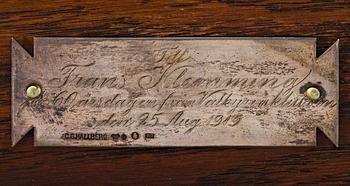 Till
Frans Klemming
på 60 årsdagen från Valkyrian klubben
den 25 Aug 1919
C.G. HALLBERG